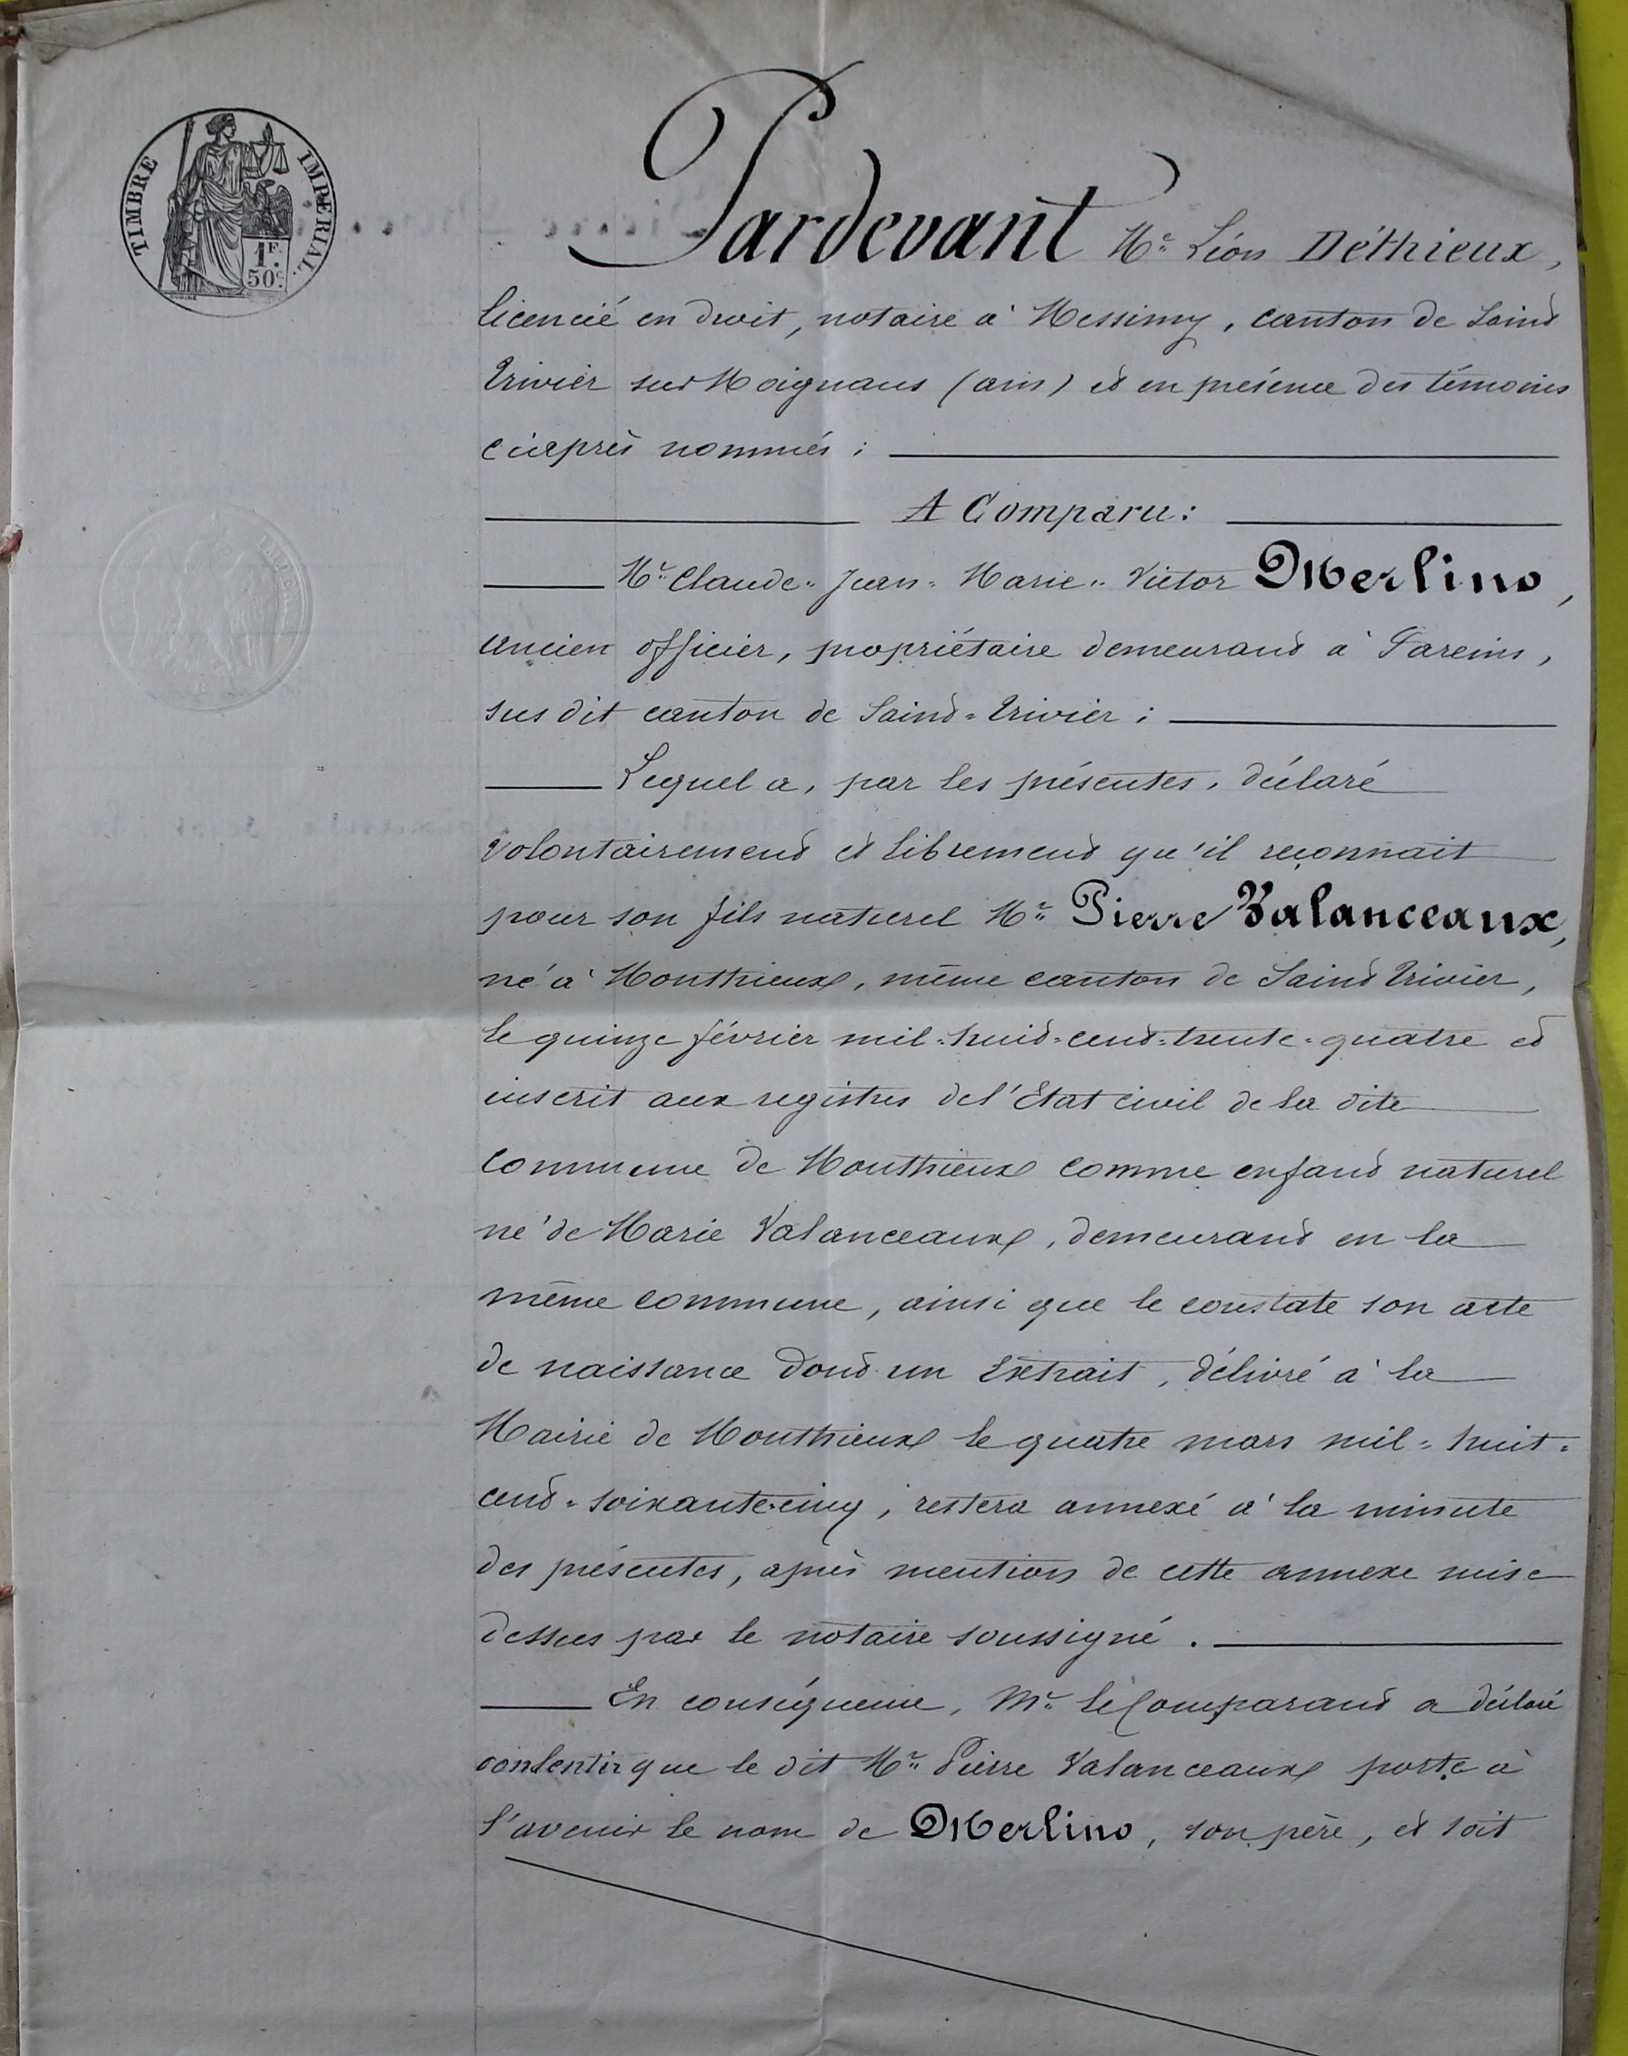 TIMBRE IMPERIAL.
1F.
50C.
Pardevant Me Léon Déthieux,
licencié en droit, notaire à Messimy, canton de Saint
Trivier sur Moignans (ain) et en présence des témoins
ciaprès nommés :
A Comparu :
Mr Claude=Jean=Marie=Victor Merlino,
ancien officier, propriétaire demeurant à Fareins,
sus dit canton de Saint=Trivier :
Lequel a, par les présentes, déclaré
volontairement et librement qu'il reçonnait
pour son fils naturel Mr Pierre Valanceaux,
né à Monthieux, même canton de Saint Trivier,
le quinze février mil=huit=cent=trente=quatre et
inscrit aux registres de l'Etat civil de la dite
commune de Monthieux comme enfant naturel
né de Marie Valanceaux, demeurant en la
même commune, ainsi que le constate son acte
de naissance dont un Extrait, délivré à la
Mairie de Monthieux le quatre mars mil=huit=
cent=soixante=cinq, restera annexé à la minute
des présentes, après mention de cette annexe mise
dessus par le notaire soussigné.
En conséquence, Mr le Comparant a déclaré
consentir que le dit Mr Pierre Valanceaux porte à
l'avenir le nom de Merlino, son père, et soit